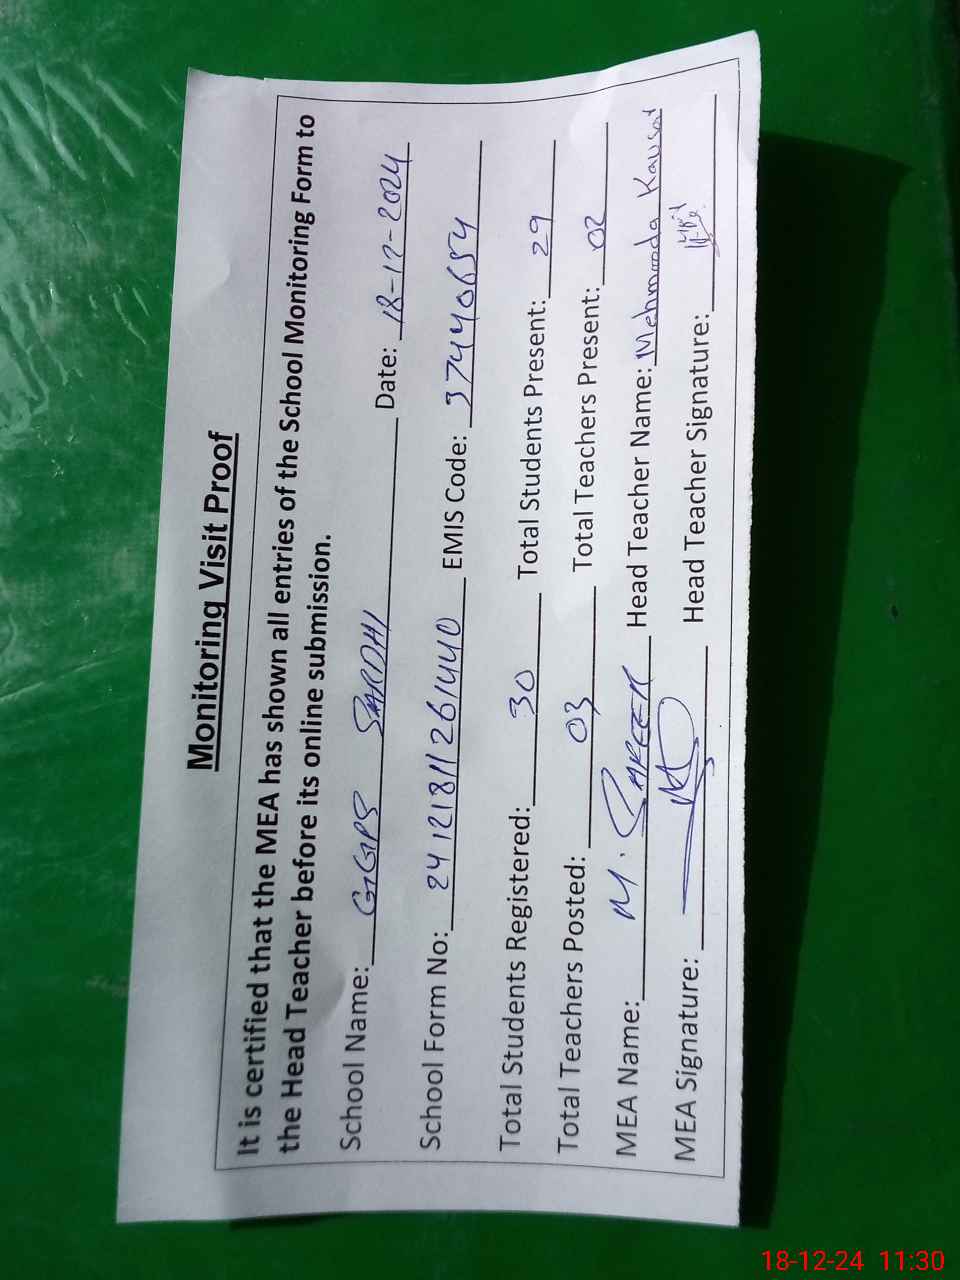 Monitoring Visit Proof
It is certified that the MEA has shown all entries of the School Monitoring Form to
the Head Teacher before its online submission.
School Name: GGPS SARDHI Date: 18-12-2024
School Form No: 24121811261440 EMIS Code: 37440654
Total Students Registered: 30 Total Students Present: 29
Total Teachers Posted: 03 Total Teachers Present: 02
MEA Name: M. Head Teacher Name: Mehmooda Kausar
MEA Signature: Head Teacher Signature:
18-12-24 11:30